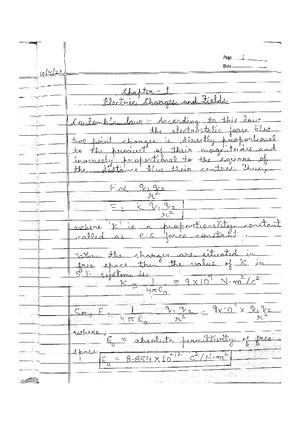 Page 1
Date
Chapter - 1
Electric Charges and Fields
Coulomb's law :- According to this law
the electrostatic force b/w
two point charges is directly proportional
to the product of their magnitudes and
inversely proportional to the square of
the distance b/w their centres. Thus,
F ∝ q₁q₂/r²
F = K q₁q₂/r²
where 'K' is a proportionality constant
called as e.s force constant.
When the charges are situated in
free space then the value of K in
S.I. system is
K = 1/4πε₀ = 9×10⁹ N·m²/c²
So, F = 1/4πε₀ q₁q₂/r² = 9×10⁹ × q₁q₂/r²
where,
ε₀ = absolute permittivity of free
space
ε₀ = 8.854×10⁻¹² c²/N·m²